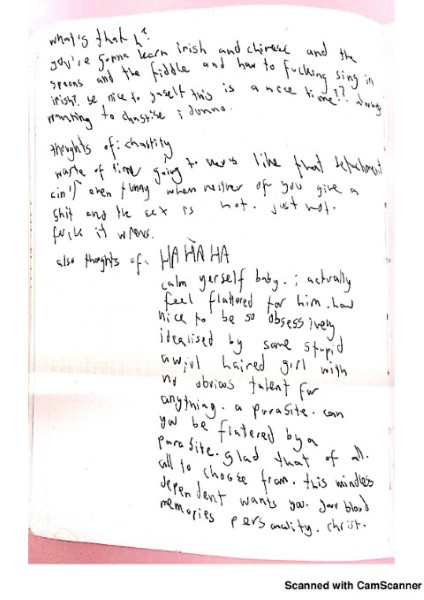 what's that h?
you're gonna learn irish and chinese and the
spoons and the fiddle and how to fucking sing in
irish. be nice to yoself this is a nice time??
wanting to chastise i dunno.
thoughts of: chastity
waste of time going to like that detachment
ain't even funny when neither of you give a
shit and the sex is not. just not.
fuck it
also thoghts of: HA HA HA
calm yerself baby. i actually
feel flattered for him. how
nice to be so obsessively
idealised by some stupid
awful haired girl with
no obvious talent for
anything. a parasite. can
you be flatered by a
parasite. glad that of all.
all to choose from. this mindless
dependent wants you. your blood
memories personality. christ.
Scanned with CamScanner